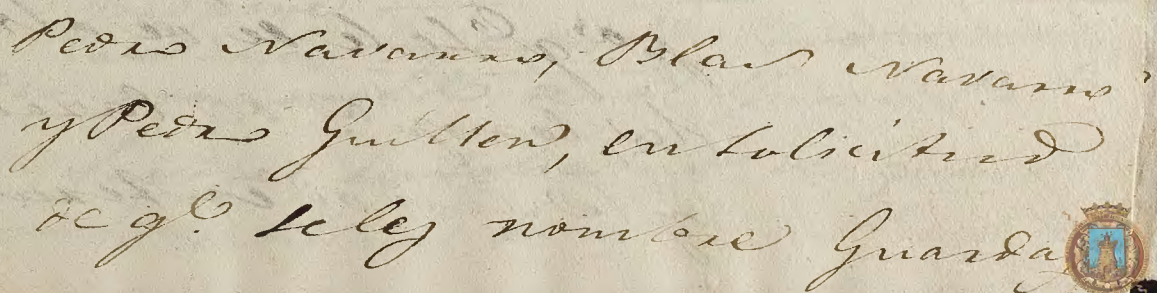 Pedro Navarro, Blas Navarro
y Pedro Guillen, en solicitud
de qe. se les nombre Guardas